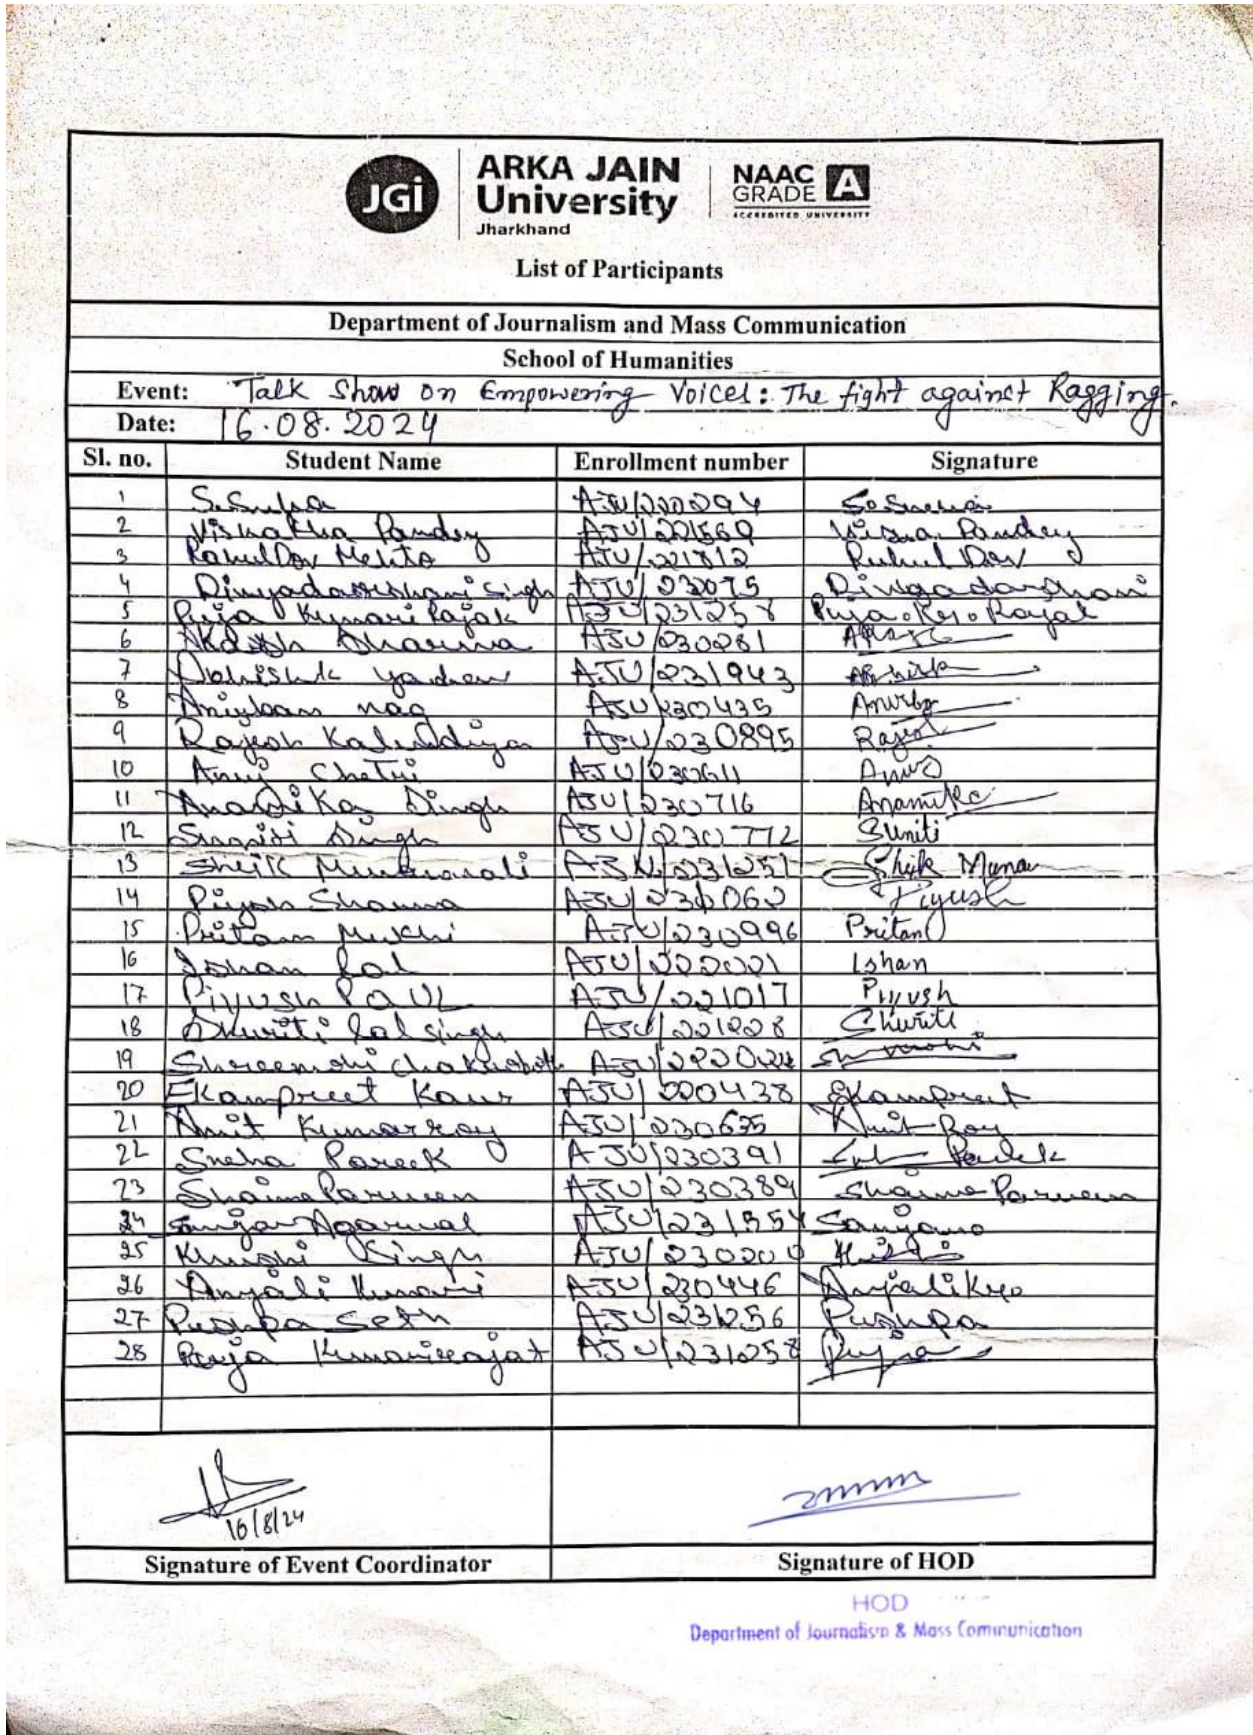 JGi
ARKA JAIN
University
Jharkhand
NAAC
GRADE A
ACCREDITED UNIVERSITY
List of Participants
Department of Journalism and Mass Communication
School of Humanities
Event: Talk Show on Empowering Voices: The fight against Ragging.
Date: 16.08.2024
Sl. no. Student Name Enrollment number Signature
1 S.Sneha AJU/220294
2 Vishakha Pandey AJU/221569 Pandey
3 Rahul Dev Mehto AJU/221812 Rahul Dev
4 Divyadarshani Singh AJU/23075 Divyadarshani
5 Puja Kumari Rajak AJU/231258 Puja
6 Akash Sharma AJU/230281
7 Abhishek yadav AJU/231943
8 Anirban nag AJU/230435
9 Rajesh AJU/230895 Rajesh
10 Anuj Chetri AJU/230611 Anuj
11 Anamika Singh AJU/230716 Anamika
12 Suniti Singh AJU/230772 Suniti
13 Sheik AJU/231257
14 Piyush Sharma Piyush
15 Pritam Mukhi AJU/230996 Pritam
16 Ishan Lal AJU/222221 Ishan
17 Piyush PAUL AJU/221017 Piyush
18 Shwriti Lal Singh AJU/221228 Shwriti
19 Shreemoi
20 Ekampreet Kaur AJU/220438 Ekampreet
21 Amit Kumar roy AJU/230675 Amit Roy
22 Sneha Pareek AJU/230391
23 Shaima Parween AJU/230389 Shaima Parween
24 Agarwal AJU/231554
25 Khushi Singh AJU/230200
26 Anjali Kumari AJU/230446 Anjali
27 Pushpa Seth AJU/231256 Pushpa
28 Puja AJU/231258 Puja
16/8/24
Signature of Event Coordinator Signature of HOD
HOD
Department of Journalism & Mass Communication